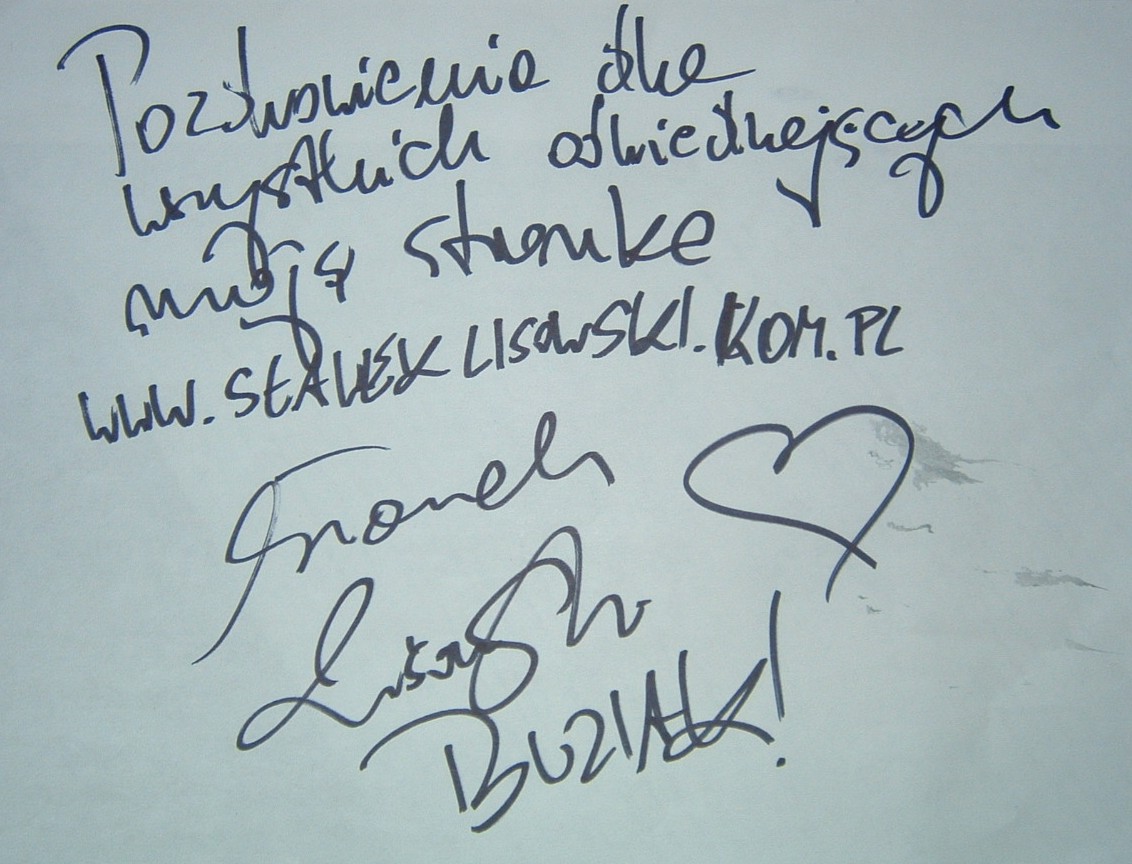 Pozdrowienia dla
wszystkich odwiedzających
moją stronkę
WWW.STAWEKLISOWSKI.KOM.PL
Franek
Lisowski
BUZIAK!